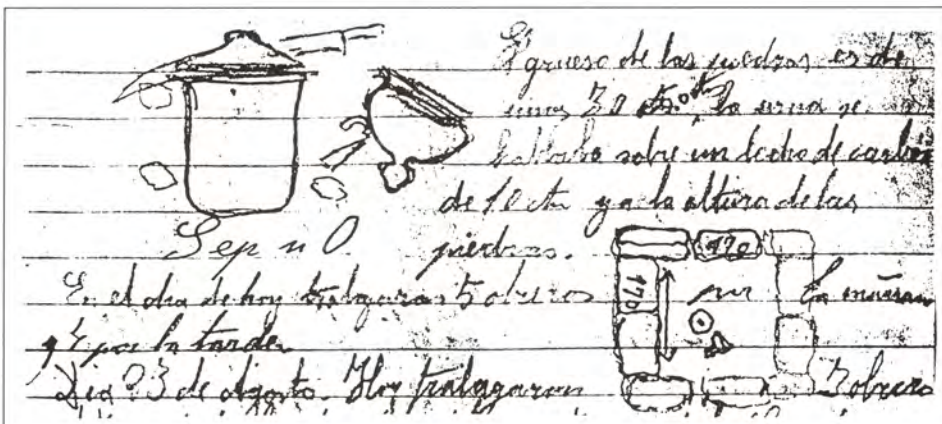 El grueso de las piedras es de
unos 30 cts. la urna se
hallaba sobre un lecho de carbon
de 10 cts y a la altura de las
Sep n 0. piedras.
170
170
En el dia de hoy trabagaron 5 obreros por la mañana
y 5 por la tarde
Dia 23 de Agosto. Hoy trabagaron 5 obreros